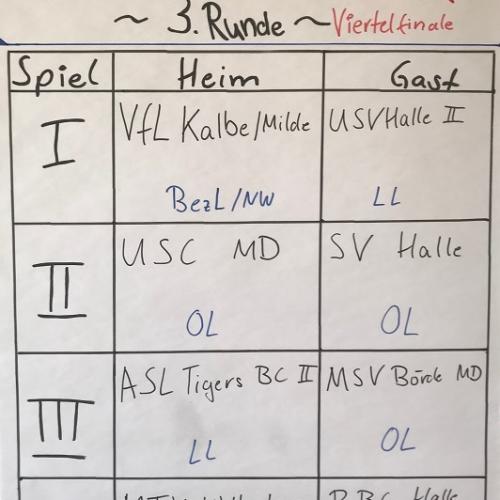 ~ 3. Runde ~ Viertelfinale
Spiel Heim Gast
I VfL Kalbe/Milde USV Halle II
BezL/NW LL
II USC MD SV Halle
OL OL
III ASL Tigers BC II MSV Börde MD
LL OL
Halle